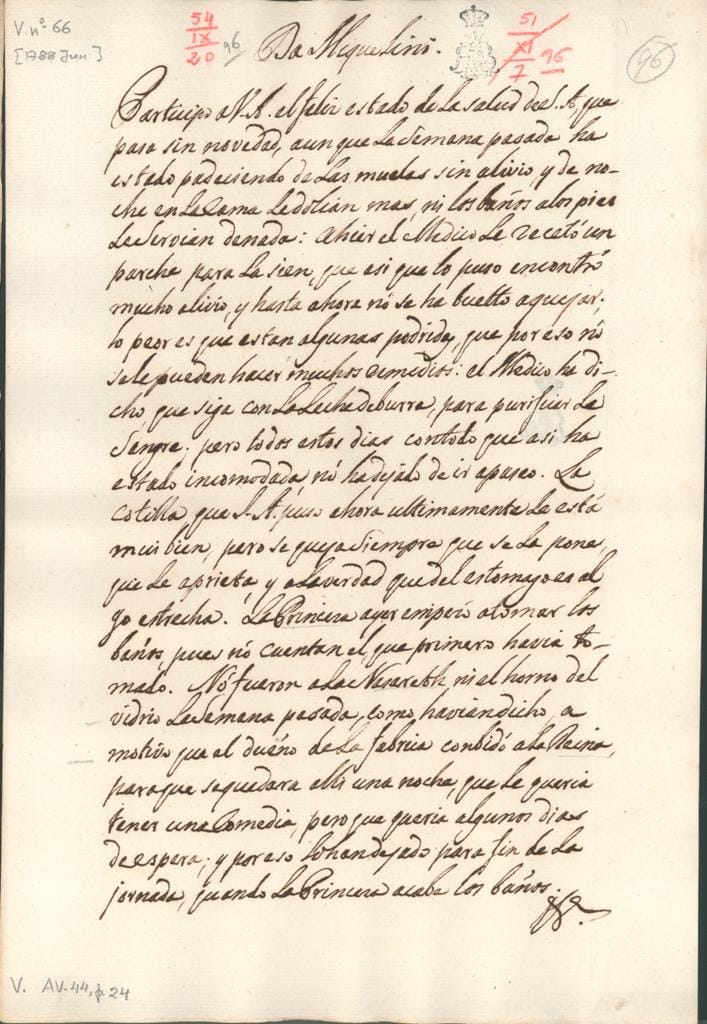 V. nº 66
[1788 Jun]
54
IX
20
96
Da Miquelini.
51
XI
7
96
96
Participo a V.A. el feliz estado de la salud de S.A, que
pasa sin novedad, aunque la Semana pasada ha
estado padeciendo de las muelas sin alivio, y de no-
che en la Cama le dolian mas, ni los baños a los pies
le Servian de nada: Ahier el Medico le recetó un
parche para la sien, que asi que lo puso encontró
mucho alivio, y hasta ahora nó se ha buelto a quejar;
lo peor es que estan algunas podridas, que por eso nó
se le pueden hacer muchos remedios: el Medico ha di-
cho, que siga con la leche de burra, para purificar la
Sangre; pero todos estos dias contodo que asi ha
estado incomodada, nó ha dejado de ir a paseo. La
Cotilla, que S.A. puso ahora ultimamente le está
mui bien, pero se queja Siempre que se la pone,
que le aprieta, y a la verdad que del estomago es al
go estrecha. La Princeza ayer empezó a tomar los
baños, pues nó cuentan el, que primero havia to-
mado. Nó fueron a la Nasareth, ni al horno del
vidrio la Semana pasada, como havian dicho, a
motivo que el dueño de la fabrica conbidó a la Reina,
para que se quedara alli una noche, que le queria
tener una Comedia, pero que queria algunos dias
de espera; y por eso lo han dejado para fin de la
jornada, quando la Princeza acabe los baños.
V. AV-44, p. 24